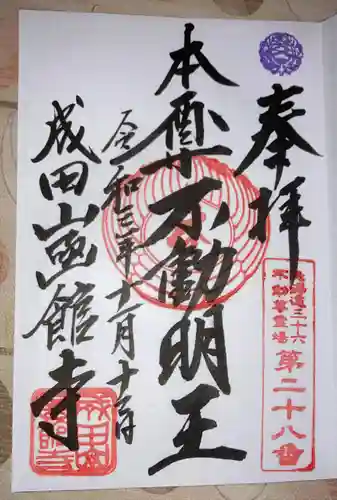 奉拝
北海道三十六
不動尊霊場
第二十八番
本尊不動明王
令和三年十一月十三日
成田山函館寺